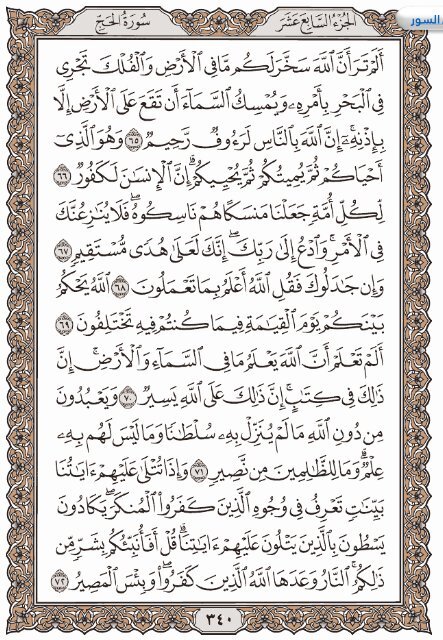 السور
الجزء السابع عشر سورة الحج
ألم تر أن الله سخر لكم ما في الأرض والفلك تجري
في البحر بأمره ويمسك السماء أن تقع على الأرض إلا
بإذنه إن الله بالناس لرءوف رحيم ٦٥ وهو الذي
أحياكم ثم يميتكم ثم يحييكم إن الإنسان لكفور ٦٦
لكل أمة جعلنا منسكا هم ناسكوه فلا ينازعنك
في الأمر وادع إلى ربك إنك لعلى هدى مستقيم ٦٧
وإن جادلوك فقل الله أعلم بما تعملون ٦٨ الله يحكم
بينكم يوم القيامة فيما كنتم فيه تختلفون ٦٩
ألم تعلم أن الله يعلم ما في السماء والأرض إن
ذلك في كتاب إن ذلك على الله يسير ٧٠ ويعبدون
من دون الله ما لم ينزل به سلطانا وما ليس لهم به
علم وما للظالمين من نصير ٧١ وإذا تتلى عليهم ءاياتنا
بينات تعرف في وجوه الذين كفروا المنكر يكادون
يسطون بالذين يتلون عليهم ءاياتنا قل أفأنبئكم بشر من
ذلكم النار وعدها الله الذين كفروا وبئس المصير ٧٢
٣٤٠